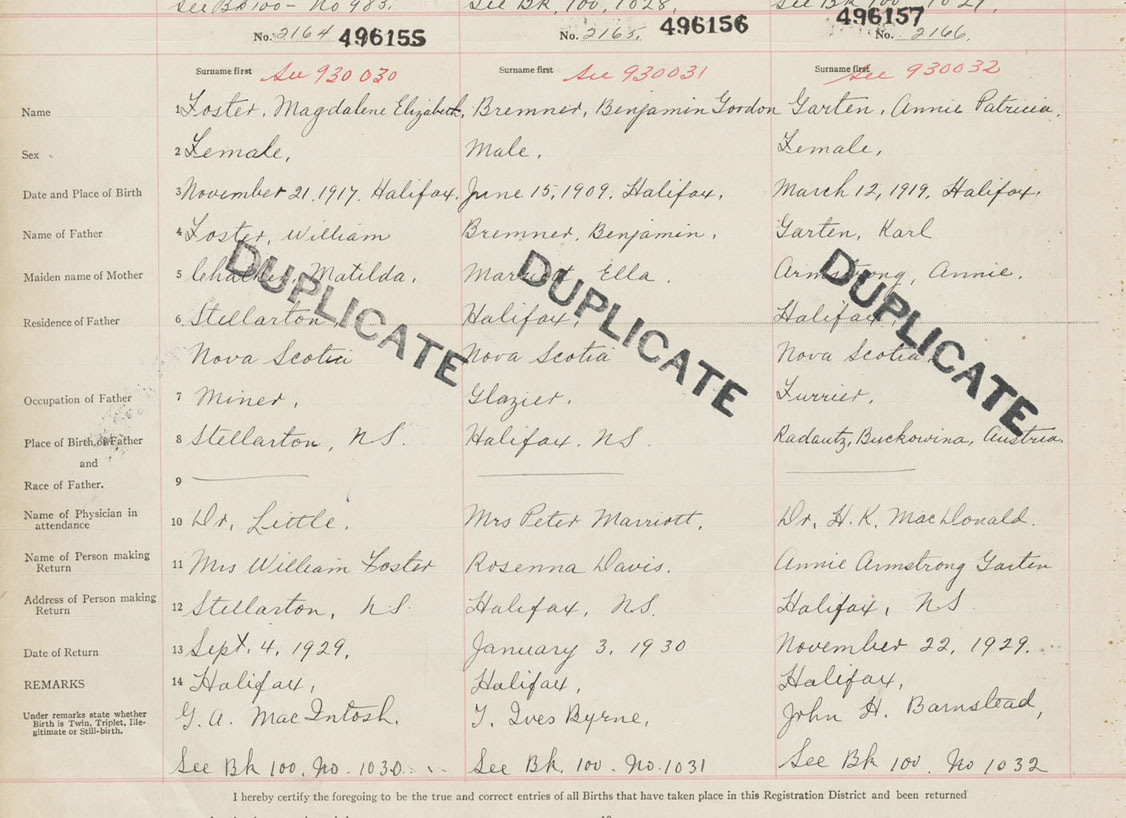 See Bk 100 - No 983.
See Bk, 100, 1028,
See Bk, 100, 1029,
No. 2164 496155
No. 2165. 496156
496157
No. 2166.
Surname first See 930030
Surname first See 930031
Surname first See 930032
Name 1 Foster, Magdalene Elizabeth, Bremner, Benjamin Gordon Garten, Annie Patricia.
Sex 2 Female, Male, Female,
Date and Place of Birth 3 November 21, 1917, Halifax, June 15, 1909, Halifax, March 12, 1919, Halifax.
Name of Father 4 Foster, William Bremner, Benjamin, Garten, Karl
Maiden name of Mother 5 Matilda, Ella. Armstrong, Annie.
DUPLICATE DUPLICATE DUPLICATE
Residence of Father 6 Stellarton, Halifax, Halifax,
Nova Scotia Nova Scotia Nova Scotia
Occupation of Father 7 Miner, Glazier, Furrier,
Place of Birth, of Father 8 Stellarton, NS. Halifax, NS. Radautz, Buckowina, Austria.
and
Race of Father. 9
Name of Physician in
attendance 10 Dr. Little, Mrs Peter Marriott, Dr. H. K. MacDonald.
Name of Person making
Return 11 Mrs William Foster Rosenna Davis, Annie Armstrong Garten
Address of Person making
Return 12 Stellarton, NS. Halifax, NS. Halifax, NS
Date of Return 13 Sept. 4, 1929, January 3, 1930 November 22, 1929.
REMARKS 14 Halifax, Halifax, Halifax,
Under remarks state whether
Birth is Twin, Triplet, Ille-
gitimate or Still-birth.
G. A. MacIntosh. T. Ives Byrne, John H. Barnstead,
See Bk 100, No. 1030 See Bk, 100, No. 1031 See Bk 100, No 1032
I hereby certify the foregoing to be the true and correct entries of all Births that have taken place in this Registration District and been returned